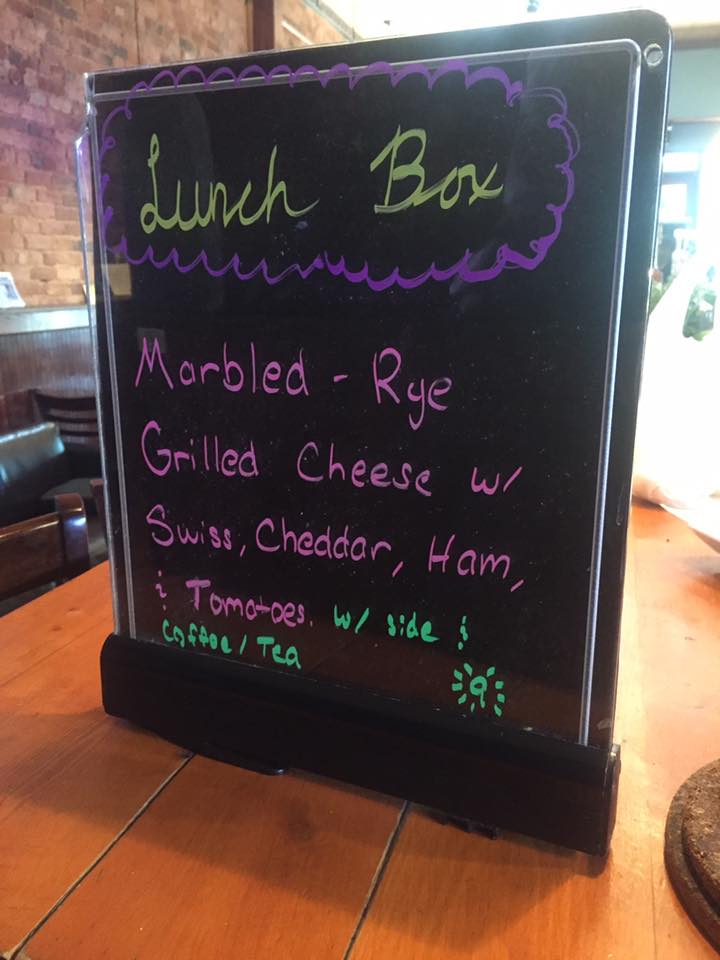 Lunch Box
Marbled - Rye
Grilled Cheese w/
Swiss, Cheddar, Ham,
& Tomatoes. w/ side &
Coffee / Tea
9